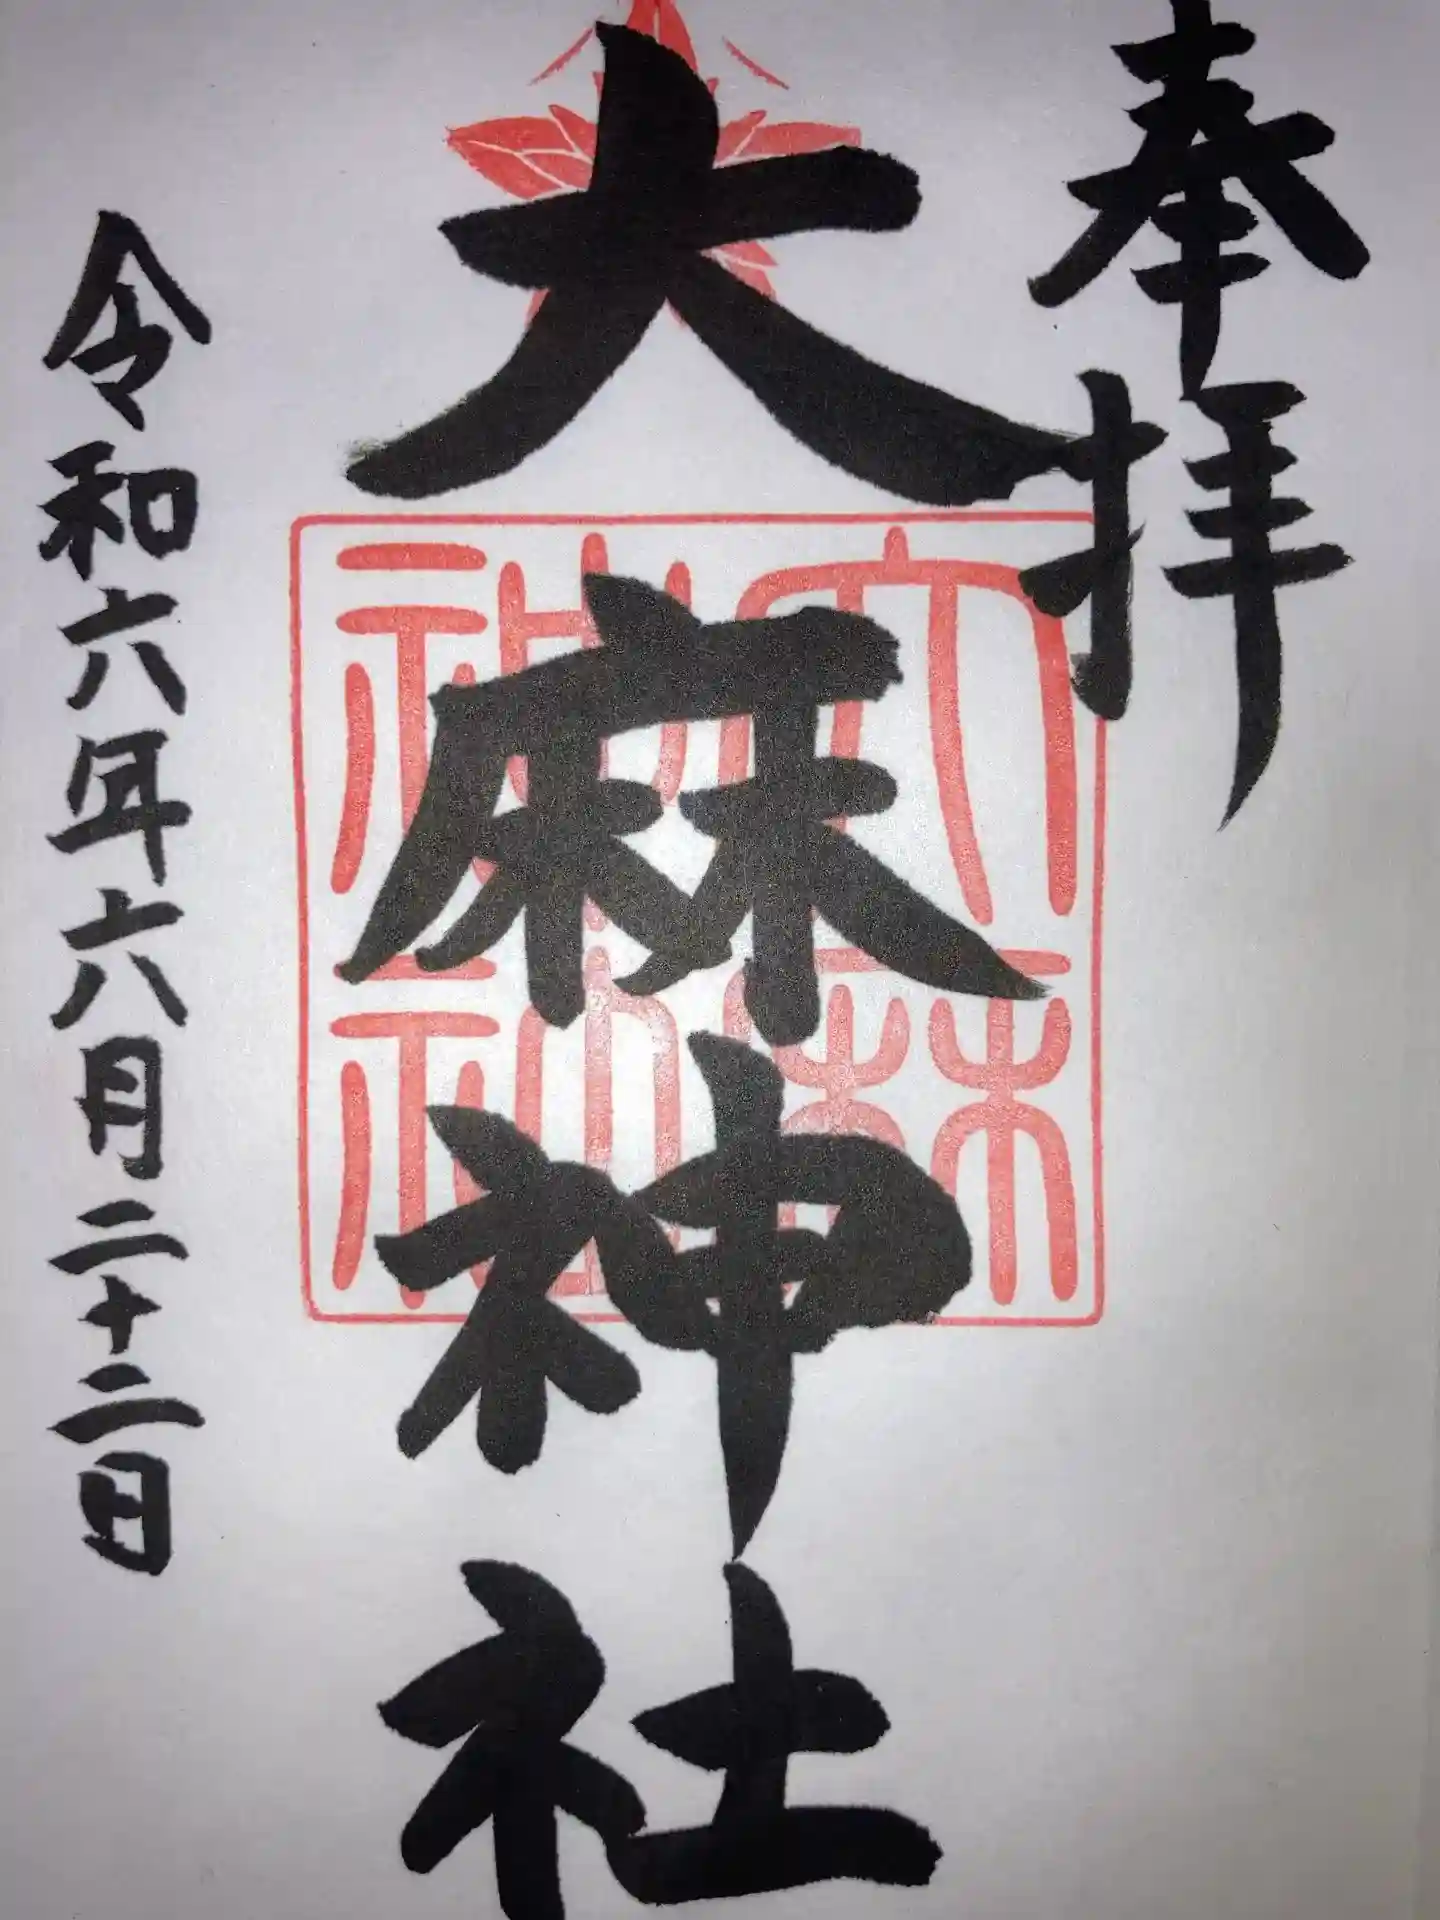 奉拝
大麻神社
大麻神社
令和六年六月二十二日